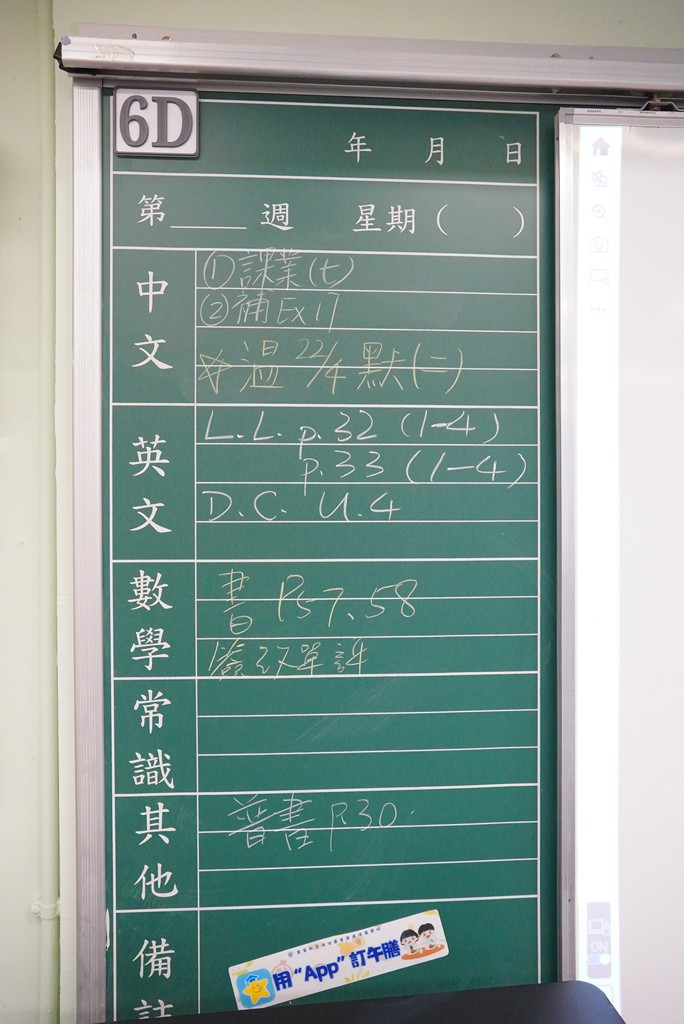 6D
年 月 日
第____週 星期( )
中文
①課業(七)
②補Ex17
☆溫22/4默(二)
英文
L.L. p.32 (1-4)
p.33 (1-4)
D.C. U.4
數學
書 P57、58
簽改單評
常識
其他
普書P.30
備註
用“App”訂午膳
ON